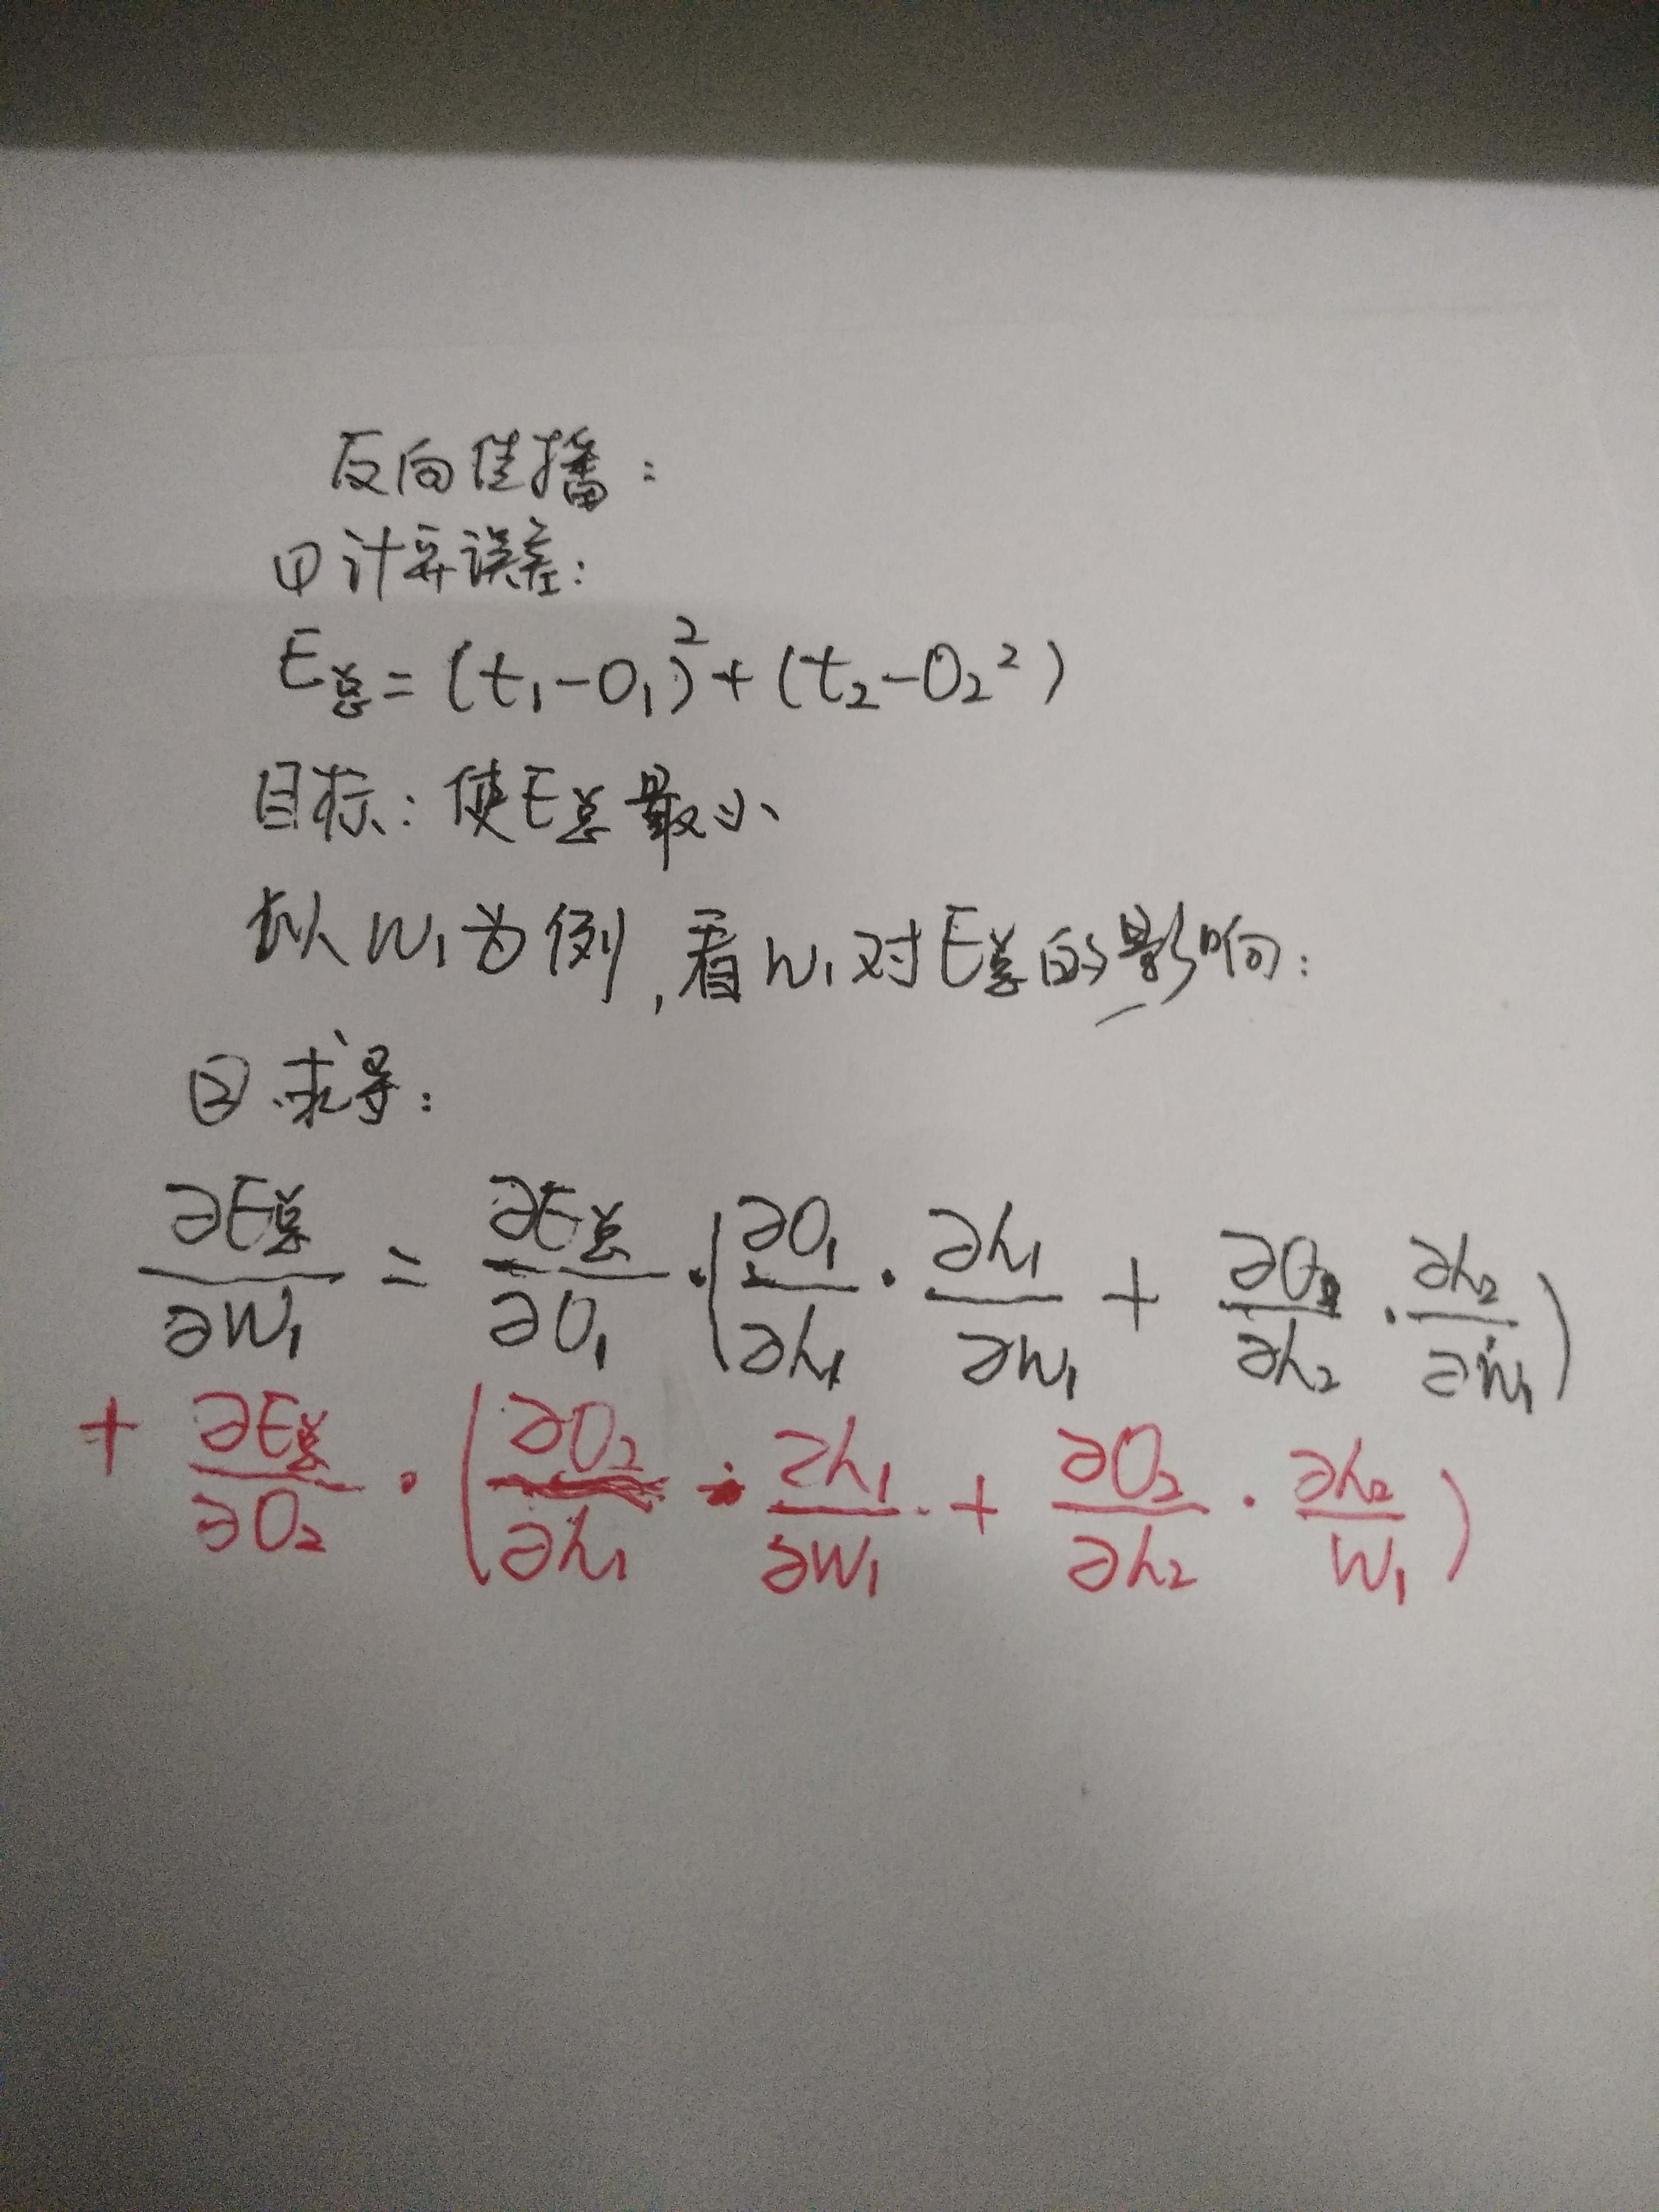 反向传播:
①计算误差:
E总=(t₁-O₁)²+(t₂-O₂²)
目标:使E总最小
以W₁为例,看W₁对E总的影响:
②求导:
∂E总/∂W₁ = ∂E总/∂O₁·(∂O₁/∂h₁·∂h₁/∂W₁ + ∂O₁/∂h₂·∂h₂/∂W₁)
+ ∂E总/∂O₂·(∂O₂/∂h₁·∂h₁/∂W₁ + ∂O₂/∂h₂·∂h₂/W₁)